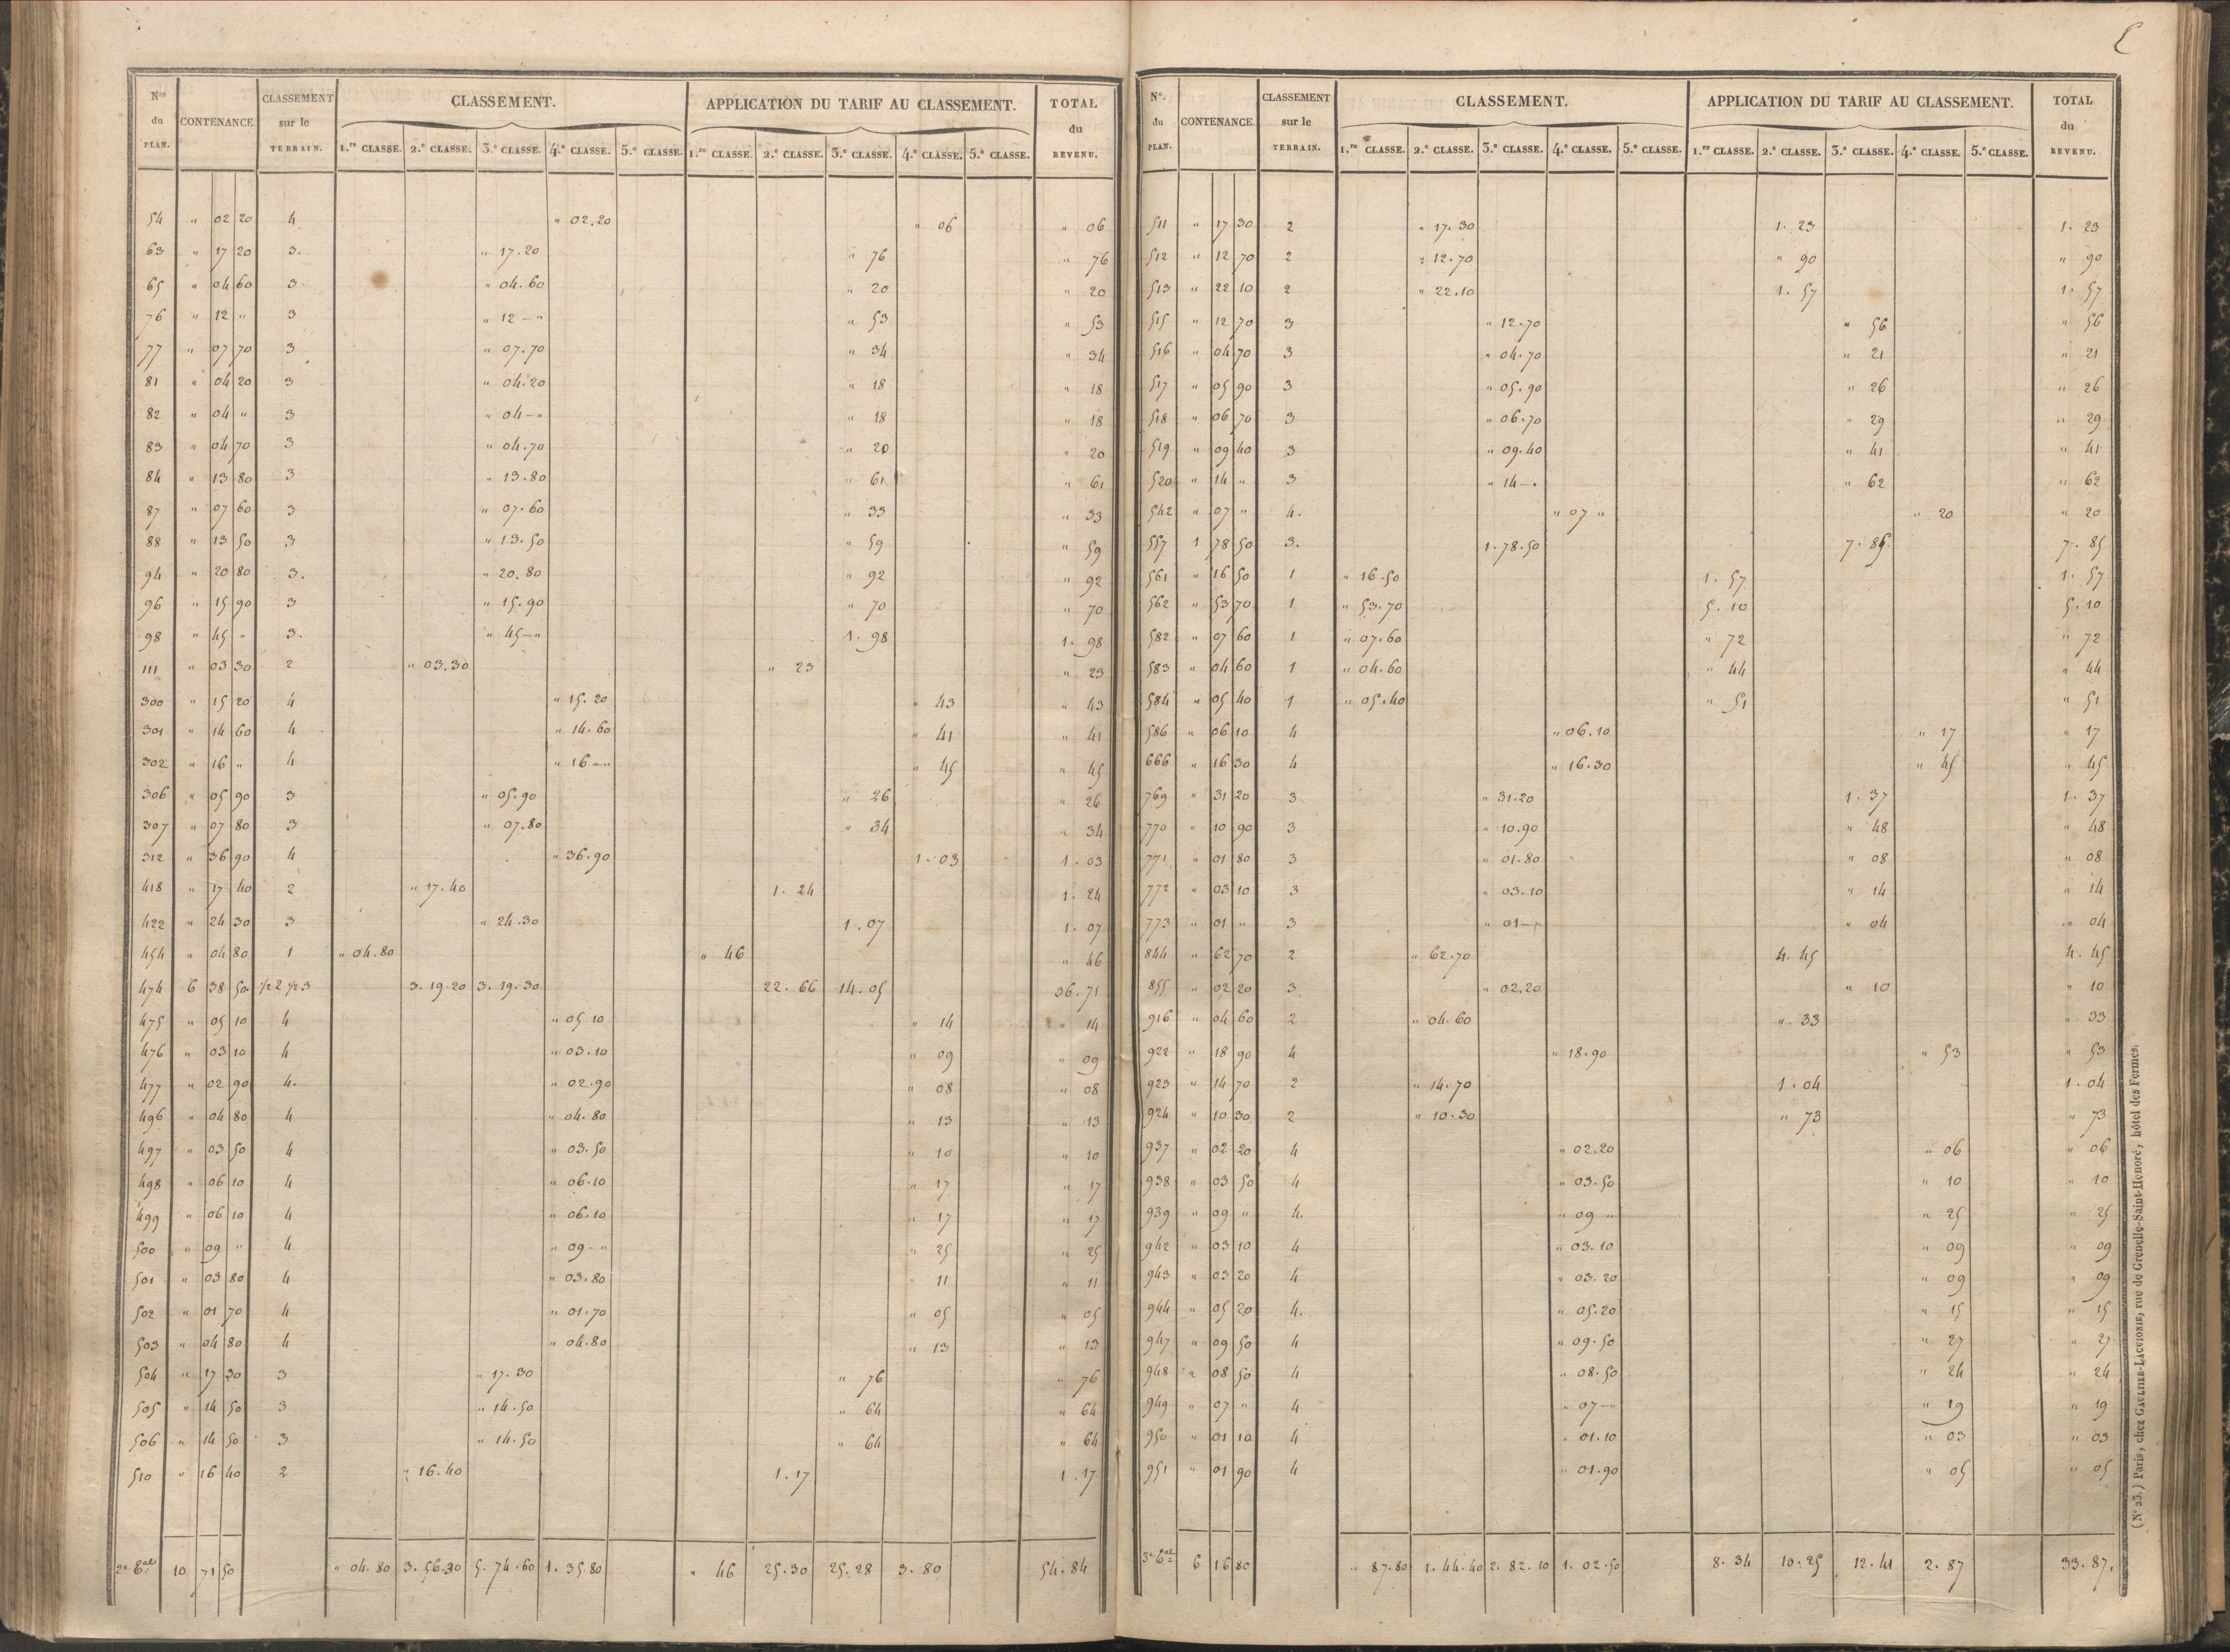 Nos du PLAN. CONTENANCE. CLASSEMENT sur le TERRAIN. CLASSEMENT. APPLICATION DU TARIF AU CLASSEMENT. TOTAL du REVENU.
1.re CLASSE. 2.e CLASSE. 3.e CLASSE. 4.e CLASSE. 5.e CLASSE. 1.re CLASSE. 2.e CLASSE. 3.e CLASSE. 4.e CLASSE. 5.e CLASSE.
54 " 02 20 4 " 02.20 " 06 " 06
63 " 17 20 3. " 17.20 " 76 " 76
65 " 04 60 3. " 04.60 " 20 " 20
76 " 12 " 3 " 12 — " " 53 " 53
77 " 07 70 3 " 07.70 " 34 " 34
81 " 04 20 3 " 04.20 " 18 " 18
82 " 04 " 3 " 04 — " " 18 " 18
83 " 04 70 3 " 04.70 " 20 " 20
84 " 13 80 3 " 13.80 " 61 " 61
87 " 07 60 3 " 07.60 " 33 " 33
88 " 13 50 3 " 13.50 " 59 " 59
94 " 20 80 3. " 20.80 " 92 " 92
96 " 15 90 3 " 15.90 " 70 " 70
98 " 45 " 3. " 45 — " 1. 98 1. 98
111 " 03 30 2 " 03.30 " 23 " 23
300 " 15 20 4 " 15.20 " 43 " 43
301 " 14 60 4 " 14.60 " 41 " 41
302 " 16 " 4 " 16 — " " 45 " 45
306 " 05 90 3 " 05.90 " 26 " 26
307 " 07 80 3 " 07.80 " 34 " 34
312 " 36 90 4 " 36.90 1. 03 1. 03
418 " 17 40 2 " 17.40 1. 24 1. 24
422 " 24 30 3 " 24.30 1. 07 1. 07
454 " 04 80 1 " 04.80 " 46 " 46
474 6 38 50 1/2 2 1/2 3 3.19.20 3.19.30 22. 66 14. 05 36.71
475 " 05 10 4 " 05 10 " 14 " 14
476 " 03 10 4 " 03.10 " 09 " 09
477 " 02 90 4. " 02.90 " 08 " 08
496 " 04 80 4 " 04.80 " 13 " 13
497 " 03 50 4 " 03.50 " 10 " 10
498 " 06 10 4 " 06.10 " 17 " 17
499 " 06 10 4 " 06.10 " 17 " 17
500 " 09 " 4 " 09 — " " 25 " 25
501 " 03 80 4 " 03.80 " 11 " 11
502 " 01 70 4 " 01.70 " 05 " 05
503 " 04 80 4 " 04.80 " 13 " 13
504 " 17 30 3 " 17.30 " 76 " 76
505 " 14 50 3 " 14.50 " 64 " 64
506 " 14 50 3 " 14.50 " 64 " 64
510 " 16 40 2 " 16.40 1. 17 1. 17
10 71 50 " 04.80 3.56.30 5.74.60 1.35.80 " 46 25.30 25.28 3.80 54.84
No. du PLAN. CONTENANCE. CLASSEMENT sur le TERRAIN. CLASSEMENT. APPLICATION DU TARIF AU CLASSEMENT. TOTAL du REVENU.
1.re CLASSE. 2.e CLASSE. 3.e CLASSE. 4.e CLASSE. 5.e CLASSE. 1.re CLASSE. 2.e CLASSE. 3.e CLASSE. 4.e CLASSE. 5.e CLASSE.
511 " 17 30 2 " 17.30 1. 23 1. 23
512 " 12 70 2 " 12.70 " 90 " 90
513 " 22 10 2 " 22.10 1. 57 1. 57
515 " 12 70 3 " 12.70 " 56 " 56
516 " 04 70 3 " 04.70 " 21 " 21
517 " 05 90 3 " 05.90 " 26 " 26
518 " 06 70 3 " 06.70 " 29 " 29
519 " 09 40 3 " 09.40 " 41 " 41
520 " 14 " 3 " 14 — " " 62 " 62
542 " 07 " 4. " 07 " " 20 " 20
557 1 78 50 3. 1.78.50 7. 85 7. 85
561 " 16 50 1 " 16.50 1. 57 1. 57
562 " 53 70 1 " 53.70 5. 10 5. 10
582 " 07 60 1 " 07.60 " 72 " 72
583 " 04 60 1 " 04.60 " 44 " 44
584 " 05 40 1 " 05.40 " 51 " 51
586 " 06 10 4 " 06.10 " 17 " 17
666 " 16 30 4 " 16.30 " 45 " 45
769 " 31 20 3 " 31.20 1. 37 1. 37
770 " 10 90 3 " 10.90 " 48 " 48
771 " 01 80 3 " 01.80 " 08 " 08
772 " 03 10 3 " 03.10 " 14 " 14
773 " 01 " 3 " 01 — " " 04 " 04
844 " 62 70 2 " 62.70 4. 45 4. 45
855 " 02 20 3 " 02.20 " 10 " 10
916 " 04 60 2 " 04.60 " 33 " 33
922 " 18 90 4 " 18.90 " 53 " 53
923 " 14 70 2 " 14.70 1. 04 1. 04
924 " 10 30 2 " 10.30 " 73 " 73
937 " 02 20 4 " 02.20 " 06 " 06
938 " 03 50 4 " 03.50 " 10 " 10
939 " 09 " 4. " 09 " " 25 " 25
942 " 03 10 4 " 03.10 " 09 " 09
943 " 03 20 4 " 03.20 " 09 " 09
944 " 05 20 4. " 05.20 " 15 " 15
947 " 09 50 4 " 09.50 " 27 " 27
948 " 08 50 4 " 08.50 " 24 " 24
949 " 07 " 4 " 07 — " " 19 " 19
950 " 01 10 4 " 01.10 " 03 " 03
951 " 01 90 4 " 01.90 " 05 " 05
6 16 80 " 87.80 1.44.40 2.82.10 1.02.50 8. 34 10.25 12.41 2.87 33.87.
(No 23.) Paris, chez GAULTIER-LAGUIONIE, rue de Grenelle-Saint-Honoré, hôtel des Fermes.